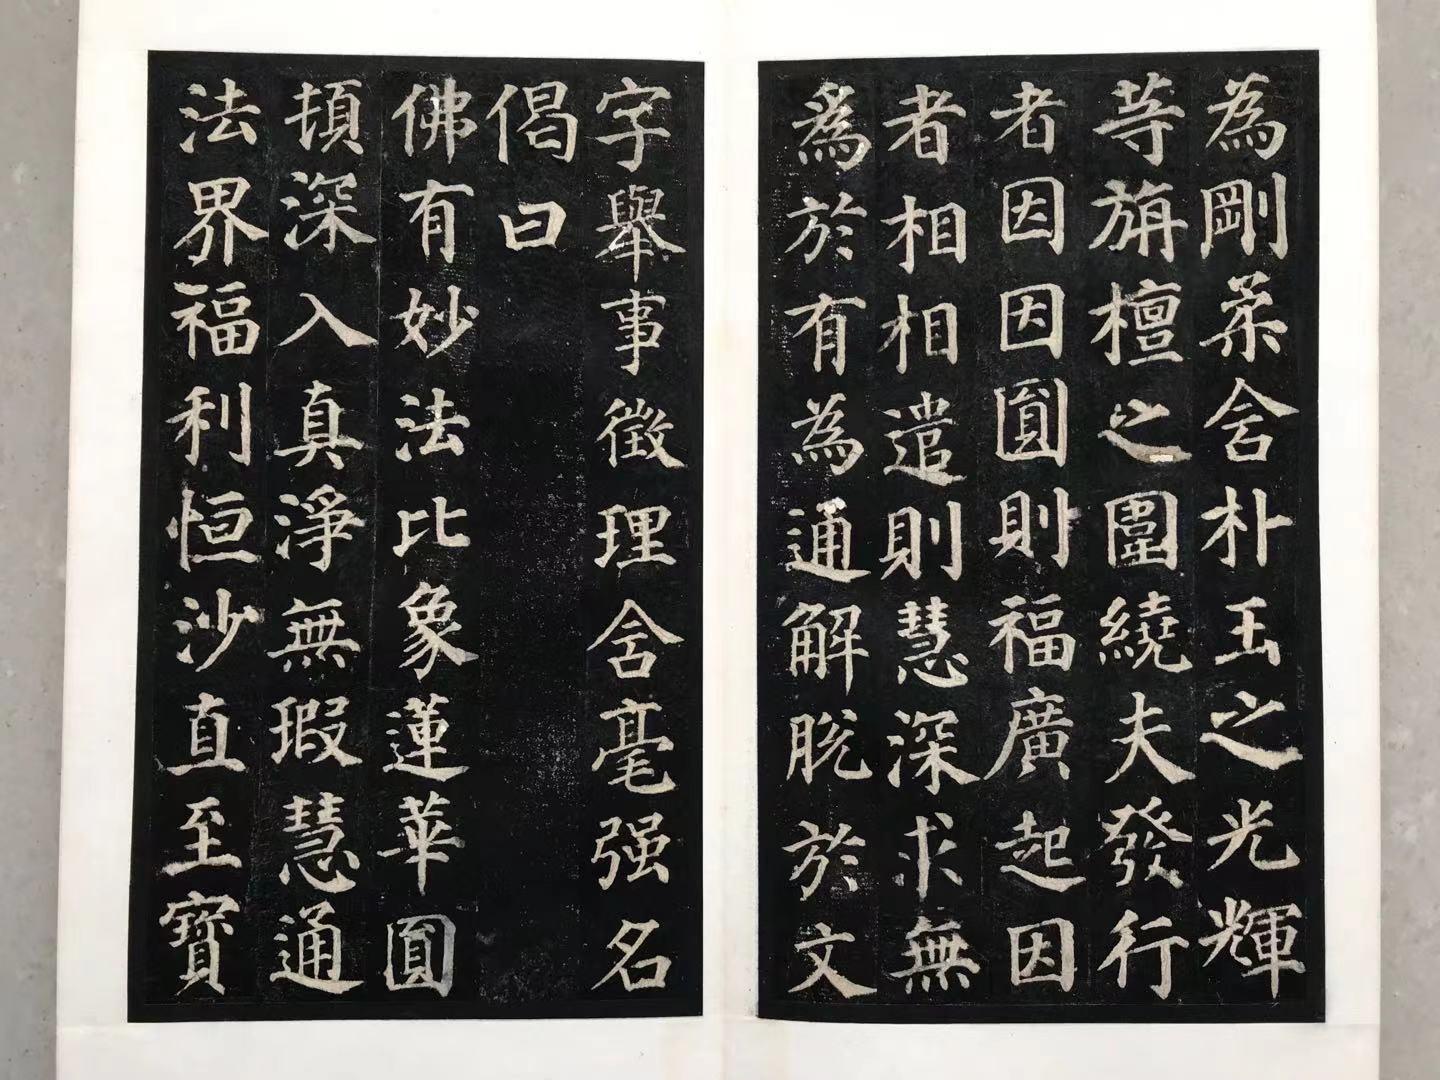 為剛柔舍朴玉之光輝
等旃檀之圍繞夫發行
者因因圎則福廣起因
者相相遣則慧深求無
為於有為通解脱於文
字舉事徵理含毫强名
偈曰
佛有妙法比象蓮華圎
頓深入真淨無瑕慧通
法界福利恒沙直至寶